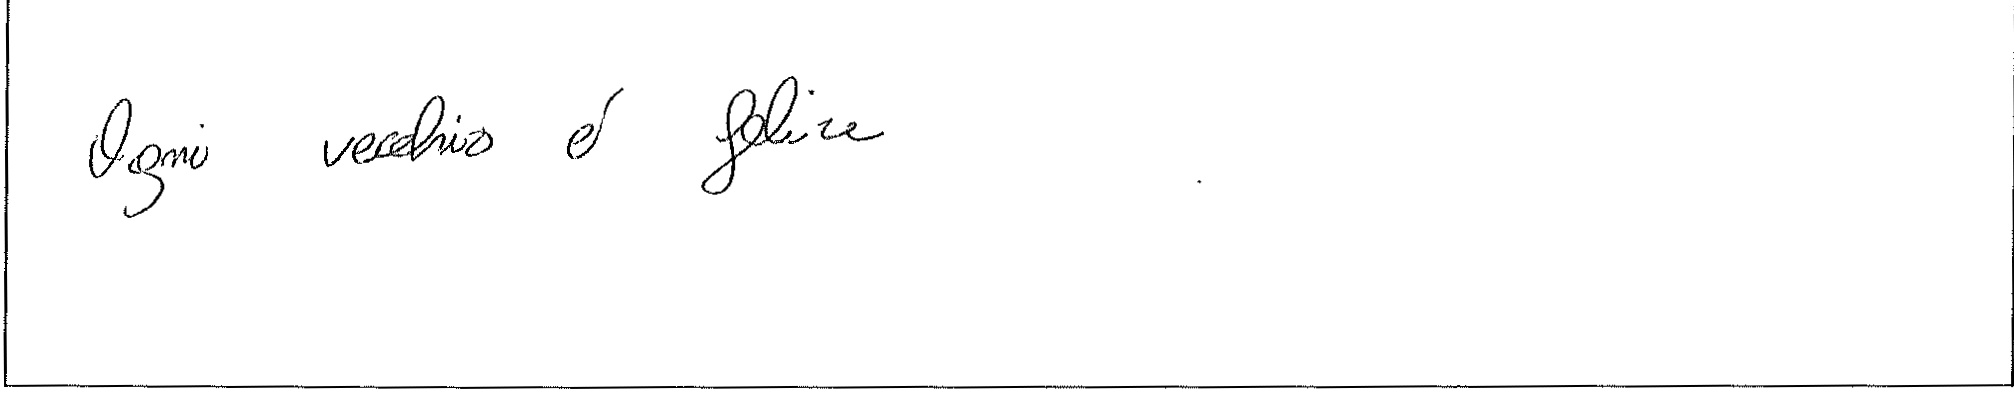 Ogni vecchio é felice